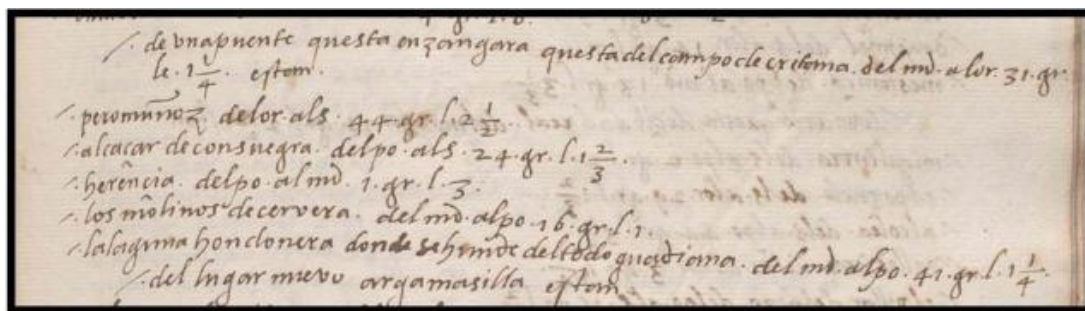 /. de vna puente questa en zangara questa del campo de critома. del md. a lor. 31. gr.
le. 1 1/4. estam.
/. peromuñoz delor. als. 44. gr. l. 2 1/2.
/. alcacar de consuegra. delpo. als. 24. gr. l. 1 2/3.
/. herencia. delpo. al md. 1. gr. l. 3.
/. los molinos de cervera. del md. alpo. 16. gr. l. 1
/. la laguna honclonera donde sehunde deltodo guadiana. del md. alpo. 41. gr. l. 1 1/4.
/. del lugar nuevo argamasilla estam